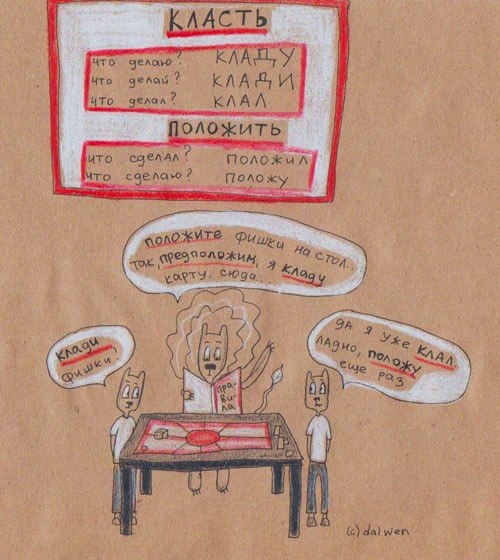 КЛАСТЬ
что делаю? КЛАДУ
что делай? КЛАДИ
что делал? КЛАЛ
ПОЛОЖИТЬ
что сделал? ПОЛОЖИЛ
что сделаю? ПОЛОЖУ
положите фишки на стол.
так, предположим, я кладу
карту, сюда...
клади
фишки,
да я уже клал.
ладно, положу
еще раз
пра-
ви-
ла
(c) dalwen